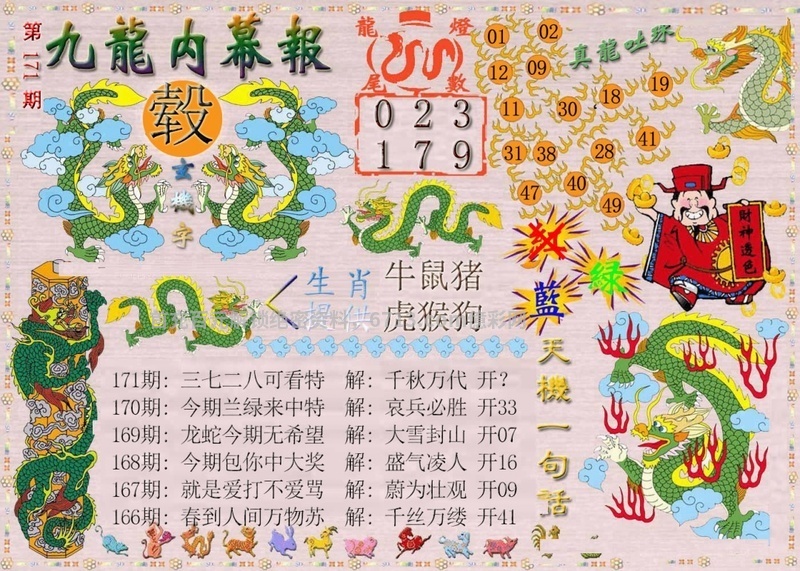 第171期
九龍内幕報
玄機字
龍燈
尾數
0 2 3
1 7 9
01 02
12 09
11 30 18 19
31 38 28 41
47 40 49
真龍吐珠
財神送色
緑
藍
生肖
牛鼠猪
虎猴狗
天機一句話
171期: 三七二八可看特 解: 千秋万代 开?
170期: 今期兰绿来中特 解: 哀兵必胜 开33
169期: 龙蛇今期无希望 解: 大雪封山 开07
168期: 今期包你中大奖 解: 盛气凌人 开16
167期: 就是爱打不爱骂 解: 蔚为壮观 开09
166期: 春到人间万物苏 解: 千丝万缕 开41